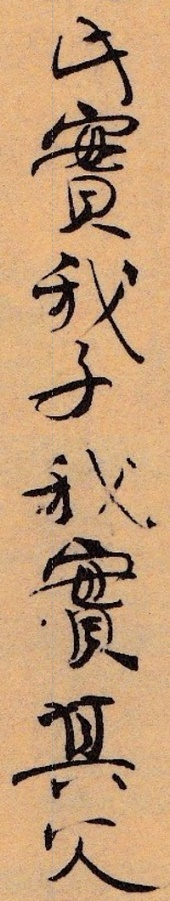 此實我子我實其父